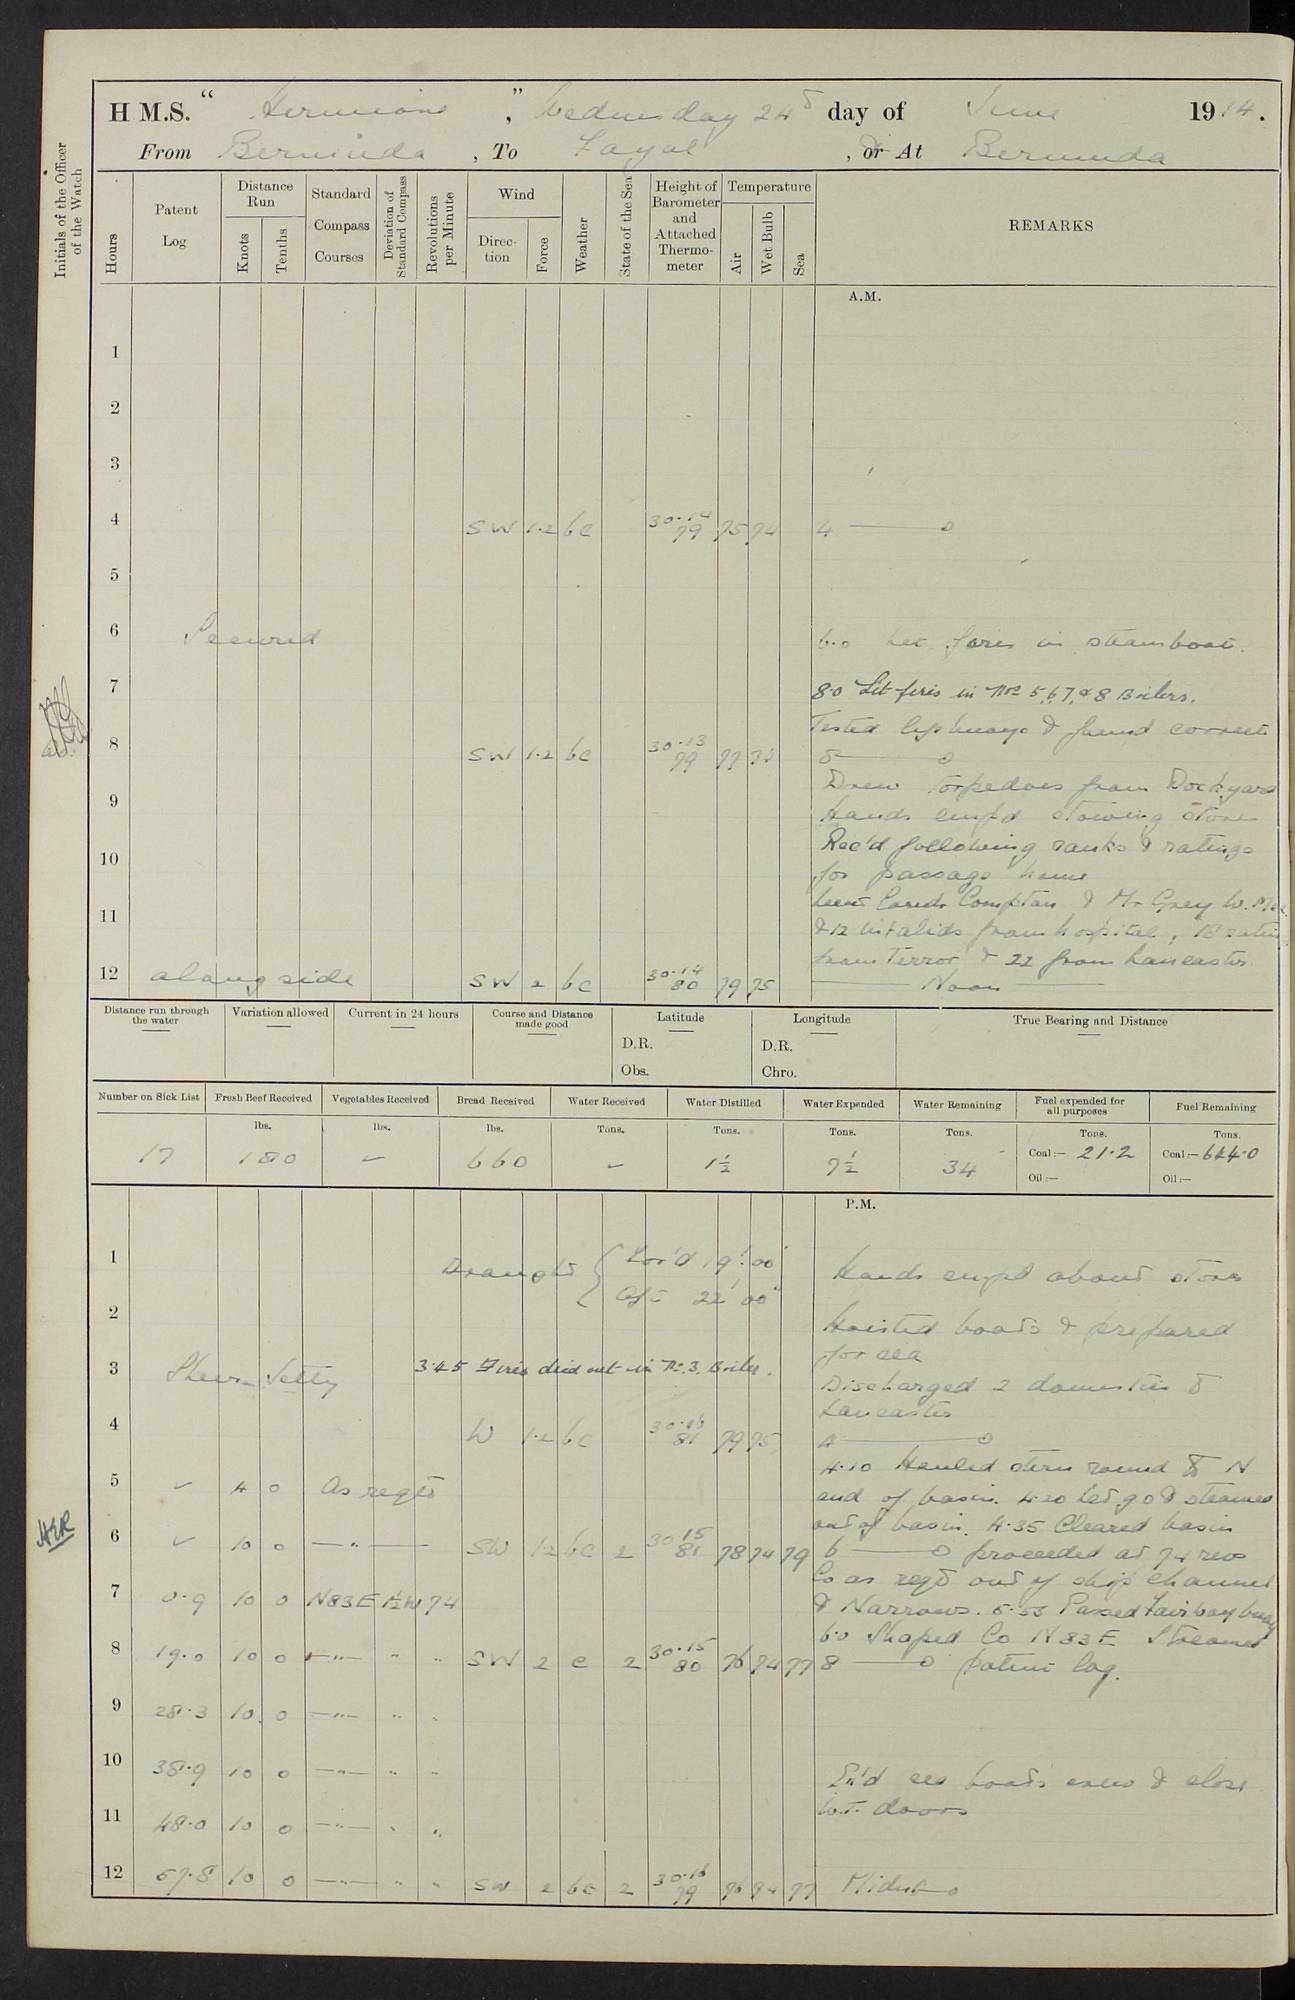 H M.S. "Hermione", Wednesday 24th day of June 1914.
From Bermuda, To Fayal, or At Bermuda
Initials of the Officer of the Watch
Hours
Patent Log
Distance Run
Knots
Tenths
Standard Compass Courses
Deviation of Standard Compass
Revolutions per Minute
Wind
Direction
Force
Weather
State of the Sea
Height of Barometer and Attached Thermometer
Temperature
Air
Wet Bulb
Sea
REMARKS
A.M.
1
2
3
4 SW 1.2 bc 30.14 79 75 74 4
5
6 Secured 6.0 Lit fires in steamboat.
7 8.0 Lit fires in Nos 5, 6, 7, & 8 Boilers.
Tested lifebuoys & found correct
8 SW 1.2 bc 30.13 79 77 8
Drew Torpedoes from Dockyard
9 Hands emp'd stowing stores
10 Rec'd following ranks & ratings
for passage home
11 Compton & Mr Grey
& 12 invalids from hospital, 18 ratings
from Terror & 22 from Lancaster
12 alongside SW 2 bc 30.14 80 79 75 Noon
Distance run through the water
Variation allowed
Current in 24 hours
Course and Distance made good
Latitude
D.R.
Obs.
Longitude
D.R.
Chro.
True Bearing and Distance
Number on Sick List
Fresh Beef Received
Vegetables Received
Bread Received
Water Received
Water Distilled
Water Expended
Water Remaining
Fuel expended for all purposes
Fuel Remaining
lbs. lbs. lbs. Tons. Tons. Tons. Tons. Tons. Tons.
17 180 ✓ 660 ✓ 1½ 7½ 34 Coal:— 21.2 Coal:— 644.0
Oil:— Oil:—
P.M.
1 Draught For'd 19' 00" Hands empd about stores
Aft 22' 00"
2 Hoisted boats & prepared
for sea
3 Sheer Jetty 3.45 Fires died out in No. 3. Boiler.
Discharged 2 domestics to
Lancaster
4 W 1.2 bc 30.16 81 79 75 4
4.10 Hauled stern round to N
5 ✓ 4 0 As reqd end of basin. 4.20 Let go & steamed
out of basin. 4.35 Cleared basin
6 ✓ 10 0 —"— SW 1.2 bc 2 30.15 81 78 74 79 6 proceeded at 74 revs
Co as reqd out of ship channel
7 0.9 10 0 N83E 1½W 74 & Narrows. 5.53 Passed Fairway buoy
6.0 Shaped Co N83E Streamed
8 19.0 10 0 —"— " " SW 2 c 2 30.15 80 76 74 77 8 patent log.
9 28.3 10 0 —"— " "
10 38.9 10 0 —"— " "
Ex'd sea boat's crew & close
11 48.0 10 0 —"— " " W.T. doors
12 57.8 10 0 —"— " " SW 2 bc 2 30.16 79 76 74 77 Midnt